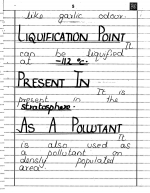 like garlic odour.
LIQUIFICATION POINT
It
can be liquified
at -112 °C.
PRESENT IN
It is
present in the
stratosphere.
AS A POLLUTANT
It
is also used as
a pollutant on
densly populated
area.